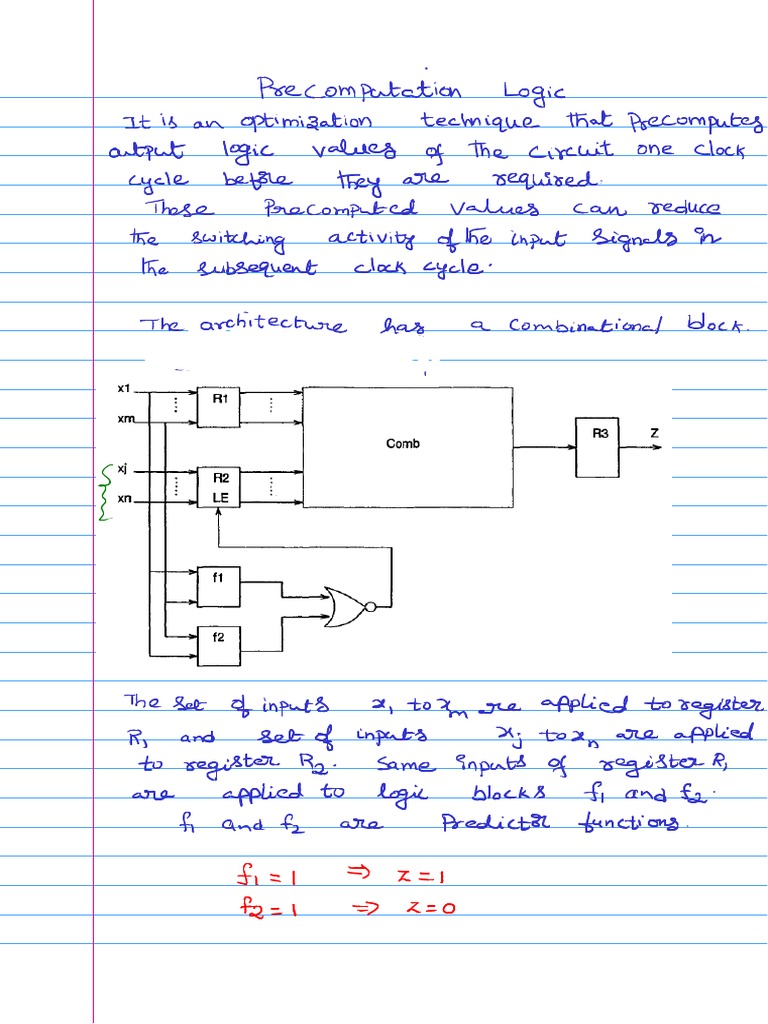 Precomputation Logic
It is an optimization technique that Precomputes
output logic values of the circuit one clock
cycle before they are required.
These Precomputed values can reduce
the switching activity of the input signals in
the subsequent clock cycle.
The architecture has a combinational block.
x1
R1
xm
Comb
R3
Z
xj
R2
xn
LE
f1
f2
The set of inputs x1 to xm are applied to register
R1 and set of inputs xj to xn are applied
to register R2. Same inputs of register R1
are applied to logic blocks f1 and f2.
f1 and f2 are Predictor functions.
f1 = 1 ⇒ z = 1
f2 = 1 ⇒ z = 0